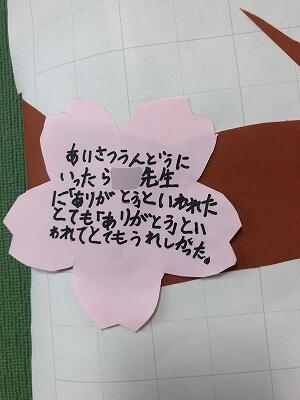 あいさつうんどうに
いったら 先生
に「ありがとうといわれた
とても「ありがとう」とい
われてとてもうれしかった。